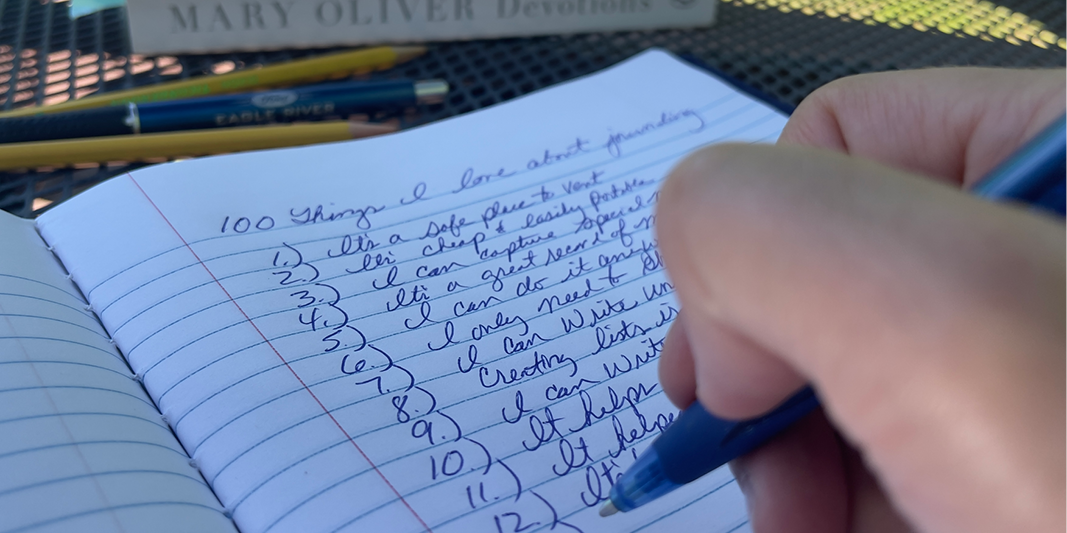 MARY OLIVER Devotions
EAGLE RIVER
100 Things I love about journaling
1.) It's a safe place to vent
2.) It's cheap & easily portable
3.) I can capture special
4.) It's a great record of
5.) I can do it any
6.) I only need to
7.) I can write
8.) Creating lists is
9.) I can write
10.) It helps
11.) It helps
12.) It's